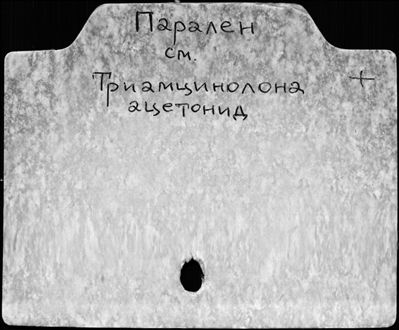 Парален
см.
Триамцинолона
ацетонид
+